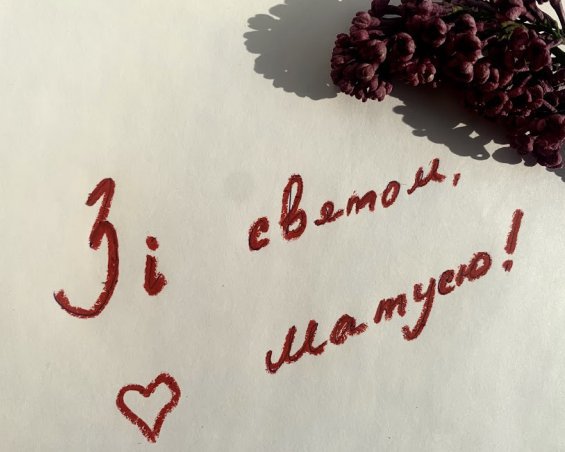 Зі светом,
матусю!